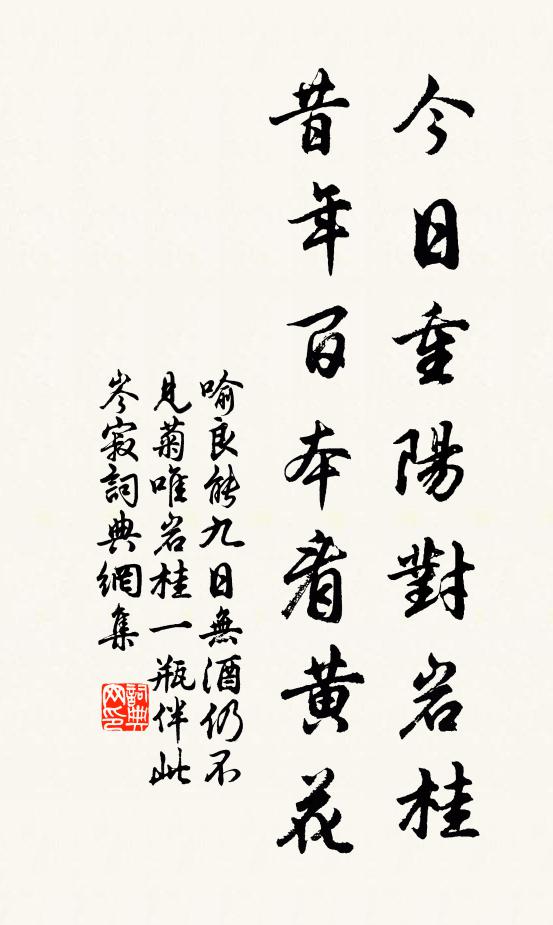 今日重陽對岩桂
昔年百本看黄花
喻良能九日無酒仍不
見菊唯岩桂一瓶伴此
岑寂詞典網集
詞典
网印